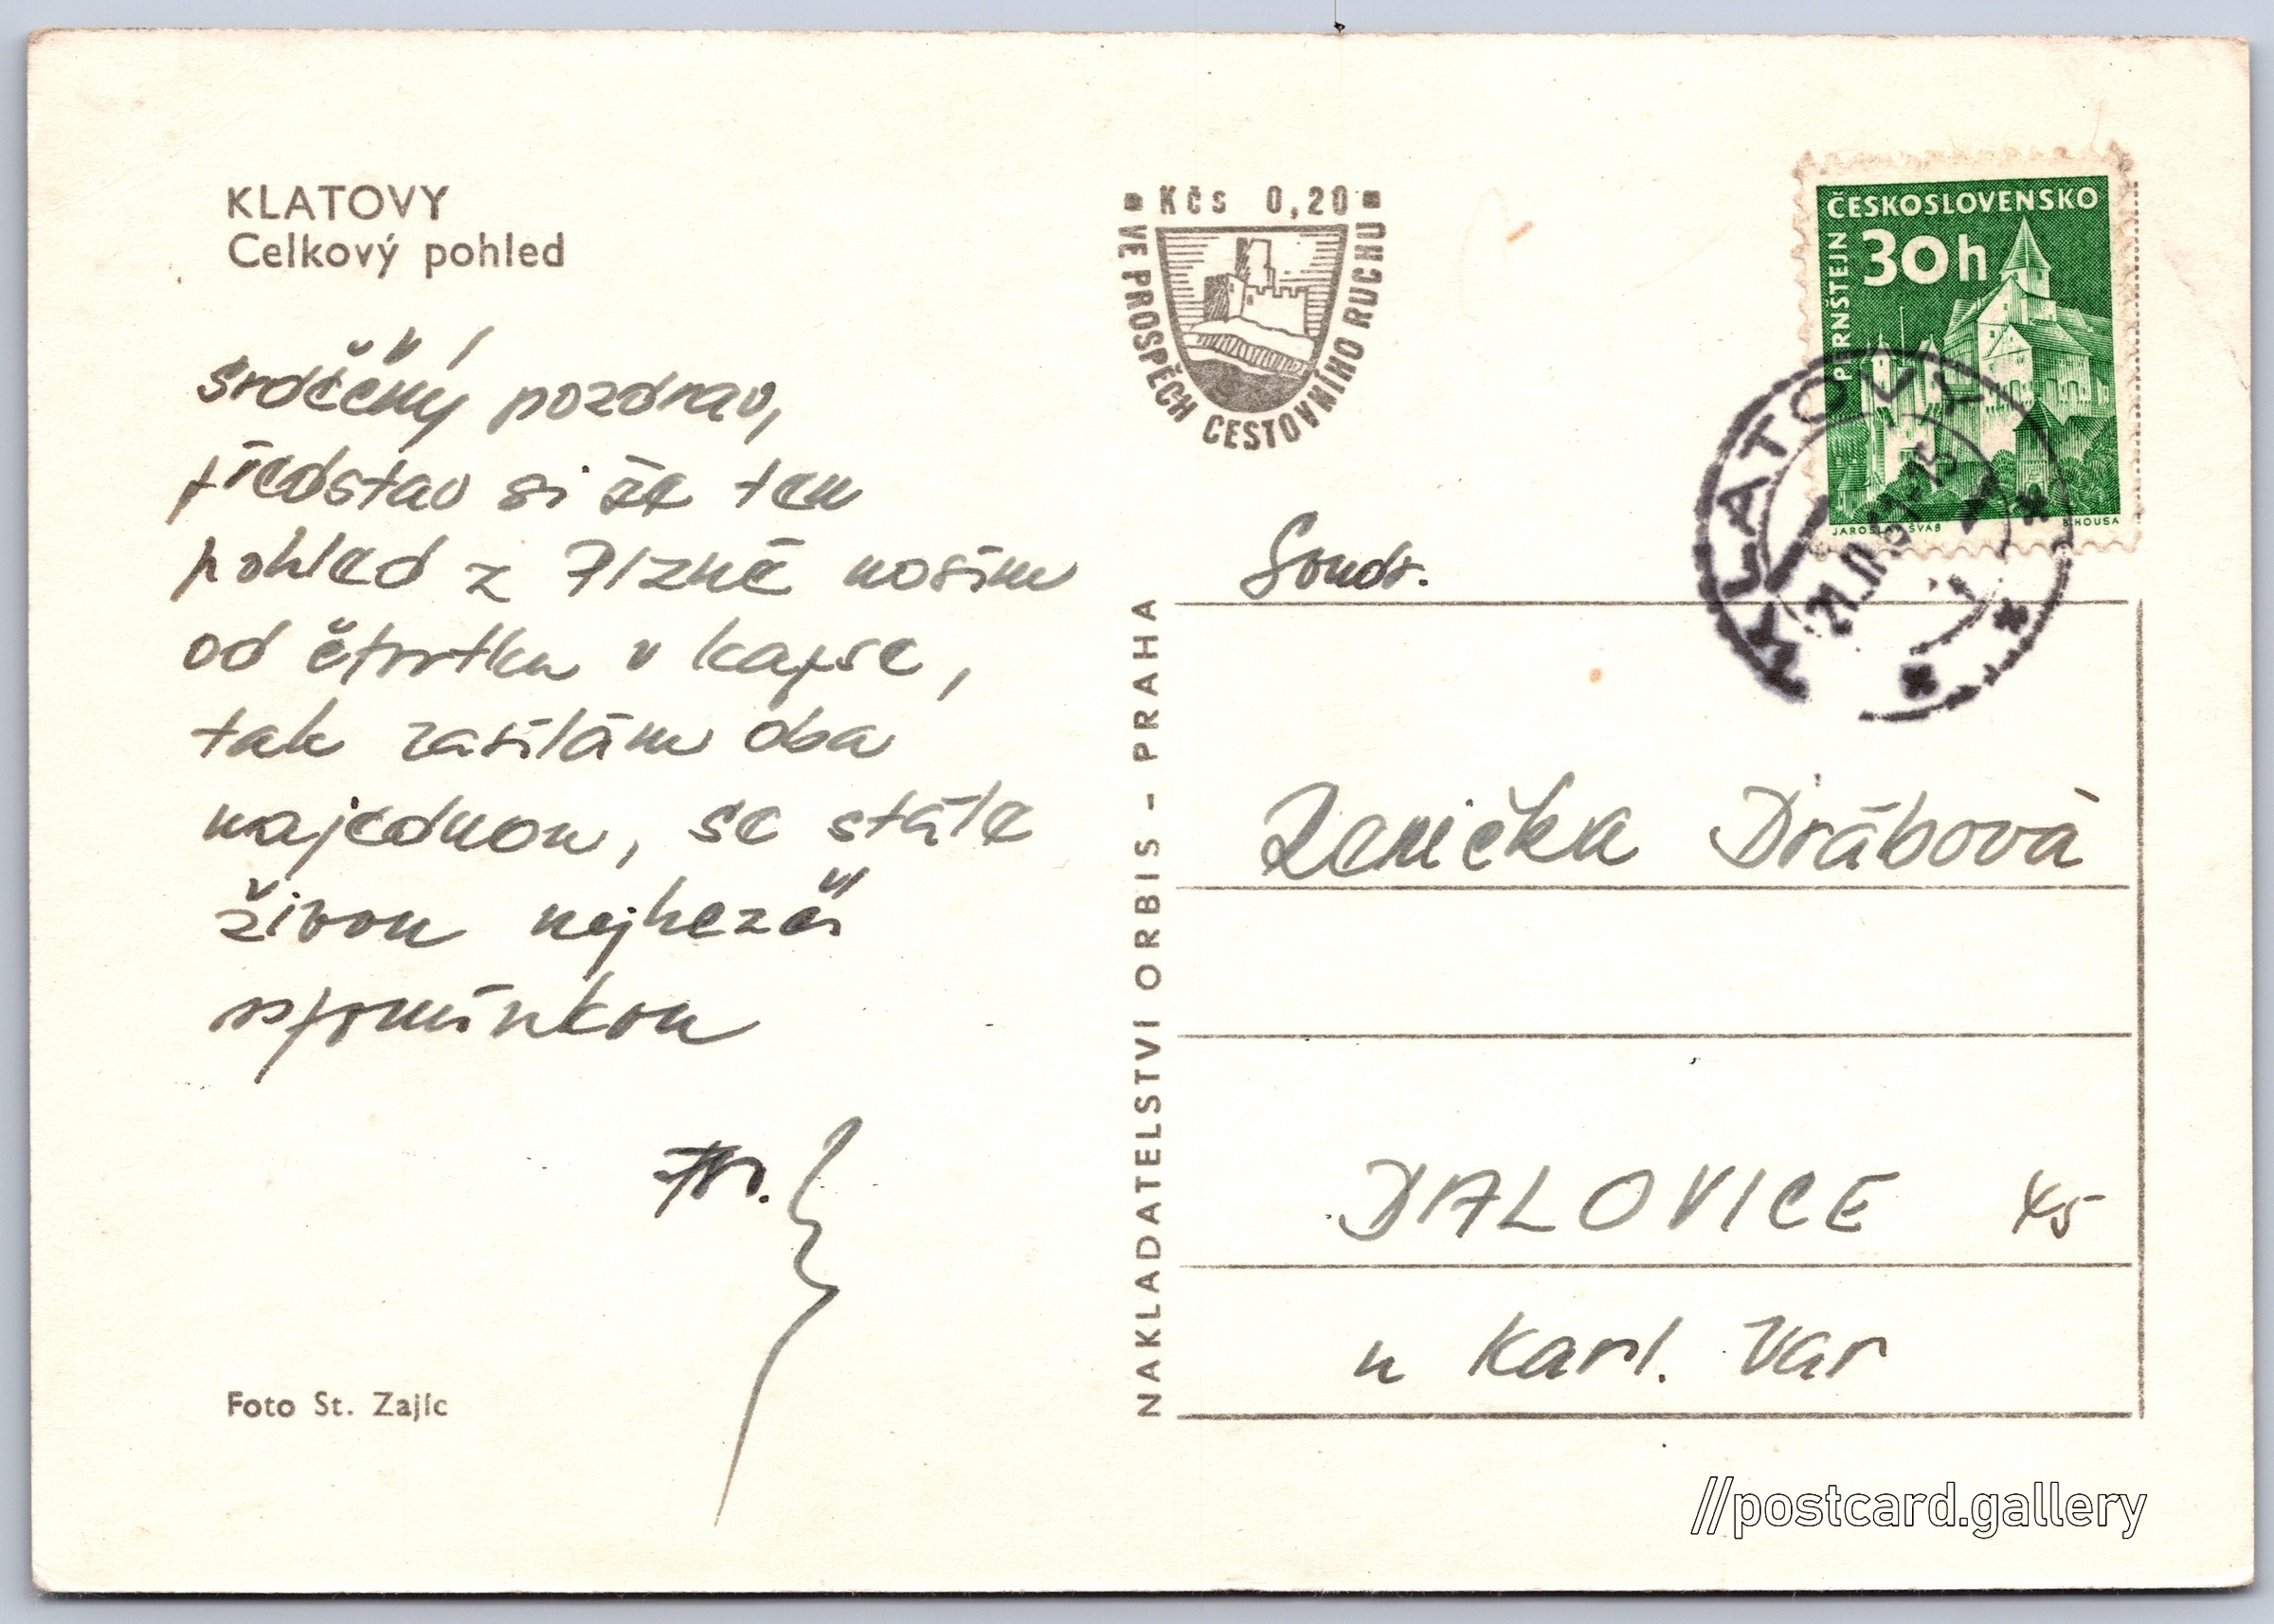 KLATOVY
Celkový pohled
Srdčěný pozdrav,
představ si že ten
pohled z Plzně nosím
od čtvrtku v kapse,
tak zasílám oba
najednou, se stále
živou nejhezčí
vzpomínkou
Foto St. Zajíc
Kčs 0,20
VE PROSPĚCH CESTOVNÍHO RUCHU
NAKLADATELSTVÍ ORBIS - PRAHA
ČESKOSLOVENSKO
30h
PERNŠTEJN
JAROSLAV ŠVAB
B.HOUSA
KLATOVY
Soudr.
Zenička Drábová
DALOVICE
u Karl. Var
//postcard.gallery